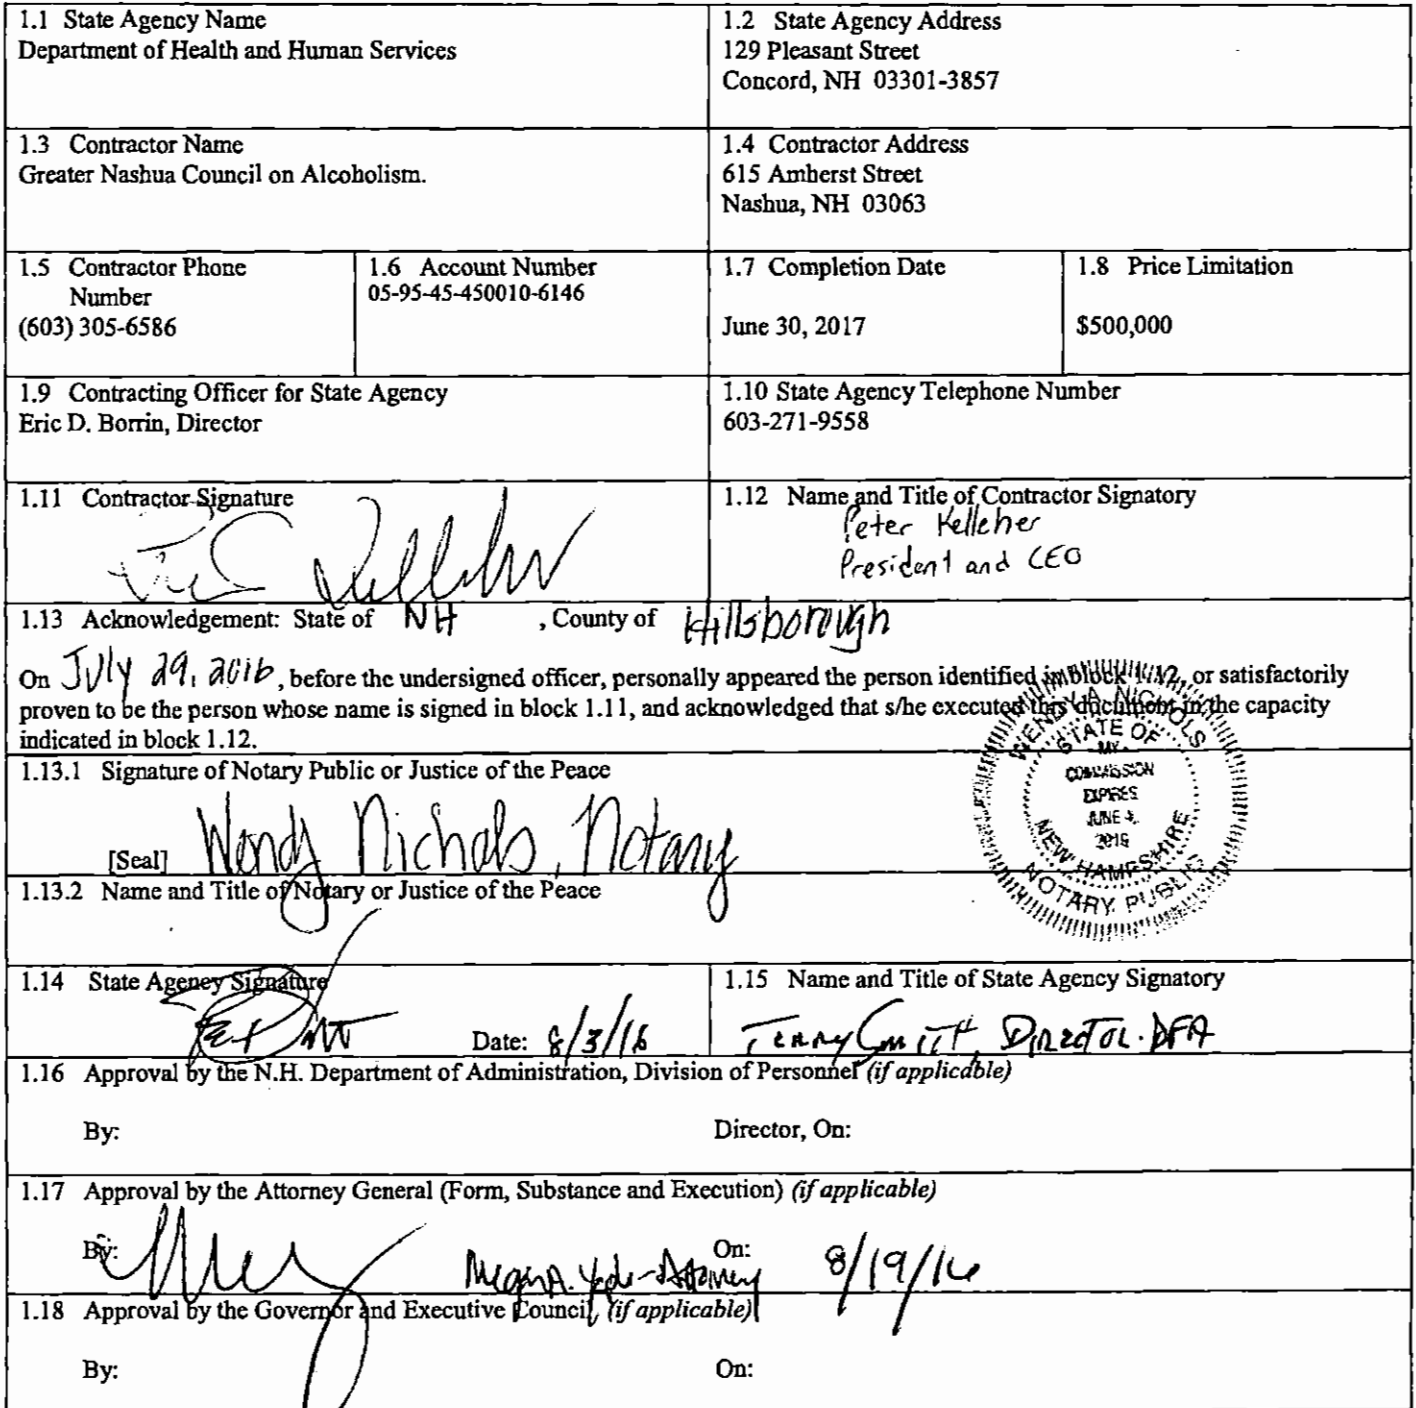 1.1 State Agency Name
Department of Health and Human Services
1.2 State Agency Address
129 Pleasant Street
Concord, NH 03301-3857
1.3 Contractor Name
Greater Nashua Council on Alcoholism.
1.4 Contractor Address
615 Amherst Street
Nashua, NH 03063
1.5 Contractor Phone
Number
(603) 305-6586
1.6 Account Number
05-95-45-450010-6146
1.7 Completion Date
June 30, 2017
1.8 Price Limitation
$500,000
1.9 Contracting Officer for State Agency
Eric D. Borrin, Director
1.10 State Agency Telephone Number
603-271-9558
1.11 Contractor Signature
1.12 Name and Title of Contractor Signatory
Peter Kelleher
President and CEO
1.13 Acknowledgement: State of NH , County of Hillsborough
On July 29, 2016, before the undersigned officer, personally appeared the person identified in block 1.12, or satisfactorily
proven to be the person whose name is signed in block 1.11, and acknowledged that s/he executed this document in the capacity
indicated in block 1.12.
WENDY A NICHOLS
STATE OF
MY
COMMISSION
EXPIRES
JUNE 4,
NEW HAMPSHIRE
NOTARY PUBLIC
1.13.1 Signature of Notary Public or Justice of the Peace
[Seal] Wendy Nichols, Notary
1.13.2 Name and Title of Notary or Justice of the Peace
1.14 State Agency Signature
Date: 8/3/16
1.15 Name and Title of State Agency Signatory
Terry Smith, Director. DFA
1.16 Approval by the N.H. Department of Administration, Division of Personnel (if applicable)
By:
Director, On:
1.17 Approval by the Attorney General (Form, Substance and Execution) (if applicable)
By: Megan A. - Attorney
On: 8/19/16
1.18 Approval by the Governor and Executive Council (if applicable)
By:
On: